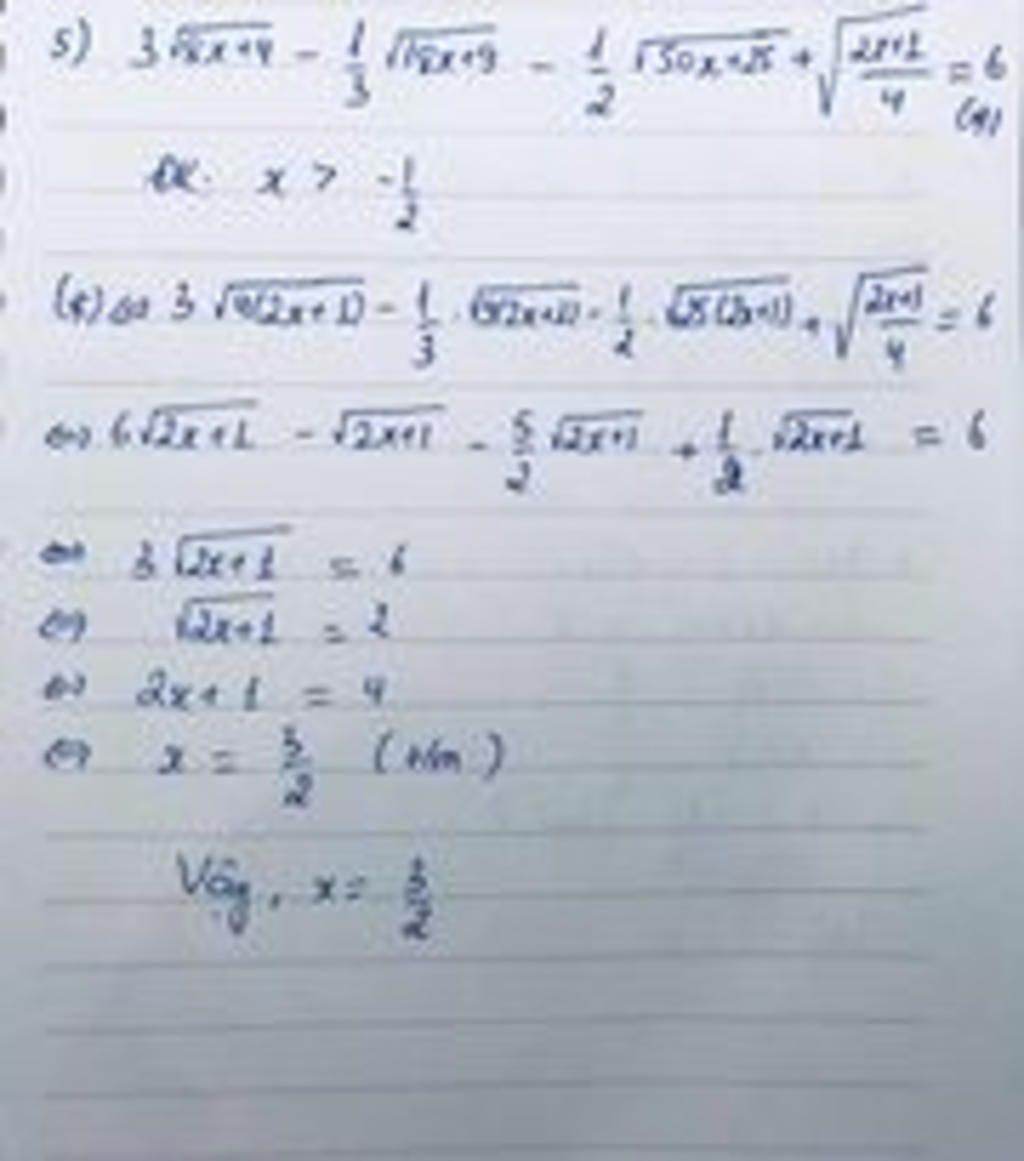 5) 3√(8x+4) - 1/3 √(18x+9) - 1/2 √(50x+25) + √((2x+1)/4) = 6 (*)
ĐK: x > -1/2
(*) ⇔ 3 √(4(2x+1)) - 1/3 . √(9(2x+1)) - 1/2 . √(25(2x+1)) + √((2x+1)/4) = 6
⇔ 6√(2x+1) - √(2x+1) - 5/2 √(2x+1) + 1/2 . √(2x+1) = 6
⇔ 3 √(2x+1) = 6
⇔ √(2x+1) = 2
⇔ 2x+1 = 4
⇔ x = 3/2 (t/m)
Vậy, x = 3/2